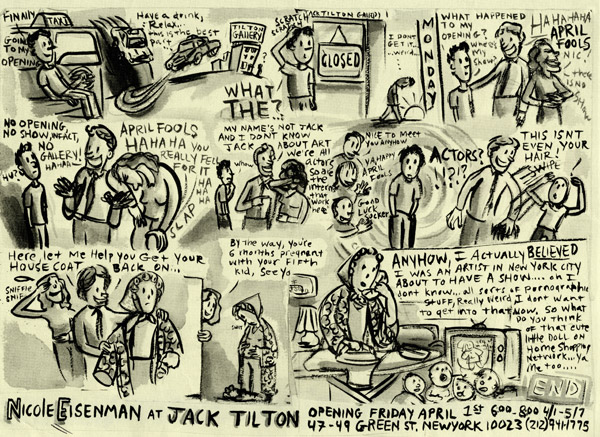 FINALLY
TAXI
GOING
TO MY
OPENING
Have a drink,
Relax...
this is the best
part
TILTON
GALLERY
SCRATCH
SCRATCH
JACK TILTON GALLERY
CLOSED
WHAT
THE?..
I DONT
GET IT...
..weird...
MONDAY
WHAT HAPPENED
TO MY
OPENING?
where's
My
Show?
HAHAHAHA
APRIL
FOOLS
NIC.
there
IS NO
Show
NO OPENING,
NO SHOW, INFACT,
NO
GALLERY!
HAHAHA..
HUH?
APRIL FOOLS
HAHAHA you
REALLY FELL
FOR IT
HA
HA
HA
SLAP
MY NAME'S NOT JACK
AND I DON'T KNOW
JACK ABOUT ART
WE'RE All
ACTORS
SO ARE
the
interns
that
work
here
whow
NICE to Meet
you Anyhow
YA, HAPPY
APRIL
FOOLS
Good
Luck
Sucker
ACTORS?
!!?!?
THIS ISN'T
EVEN YOUR
HAIR!
SWIPE
Here, let Me Help you Get your
HOUSE COAT BACK ON...
SNIFFLE
SNIF
By the way, you're
6 months pregnant
with your Fifth
kid, See ya
ANYHOW, I Actually BELIEVED
I WAS AN ARTIST IN NEW YORK CITY
ABOUT TO HAVE A SHOW.... on I
dont know... all sorts of Pornographic
STUFF, Really Weird, I dont want
to get into that Now. So what
do you think
of that cute
little Doll on
Home Shopping
Network...Ya
Me too....
END
NICOLE EISENMAN AT JACK TILTON OPENING FRIDAY APRIL 1st 600-800 4/1-5/7
47-49 GREEN ST. NEWYORK 10023 (212) 941-1775